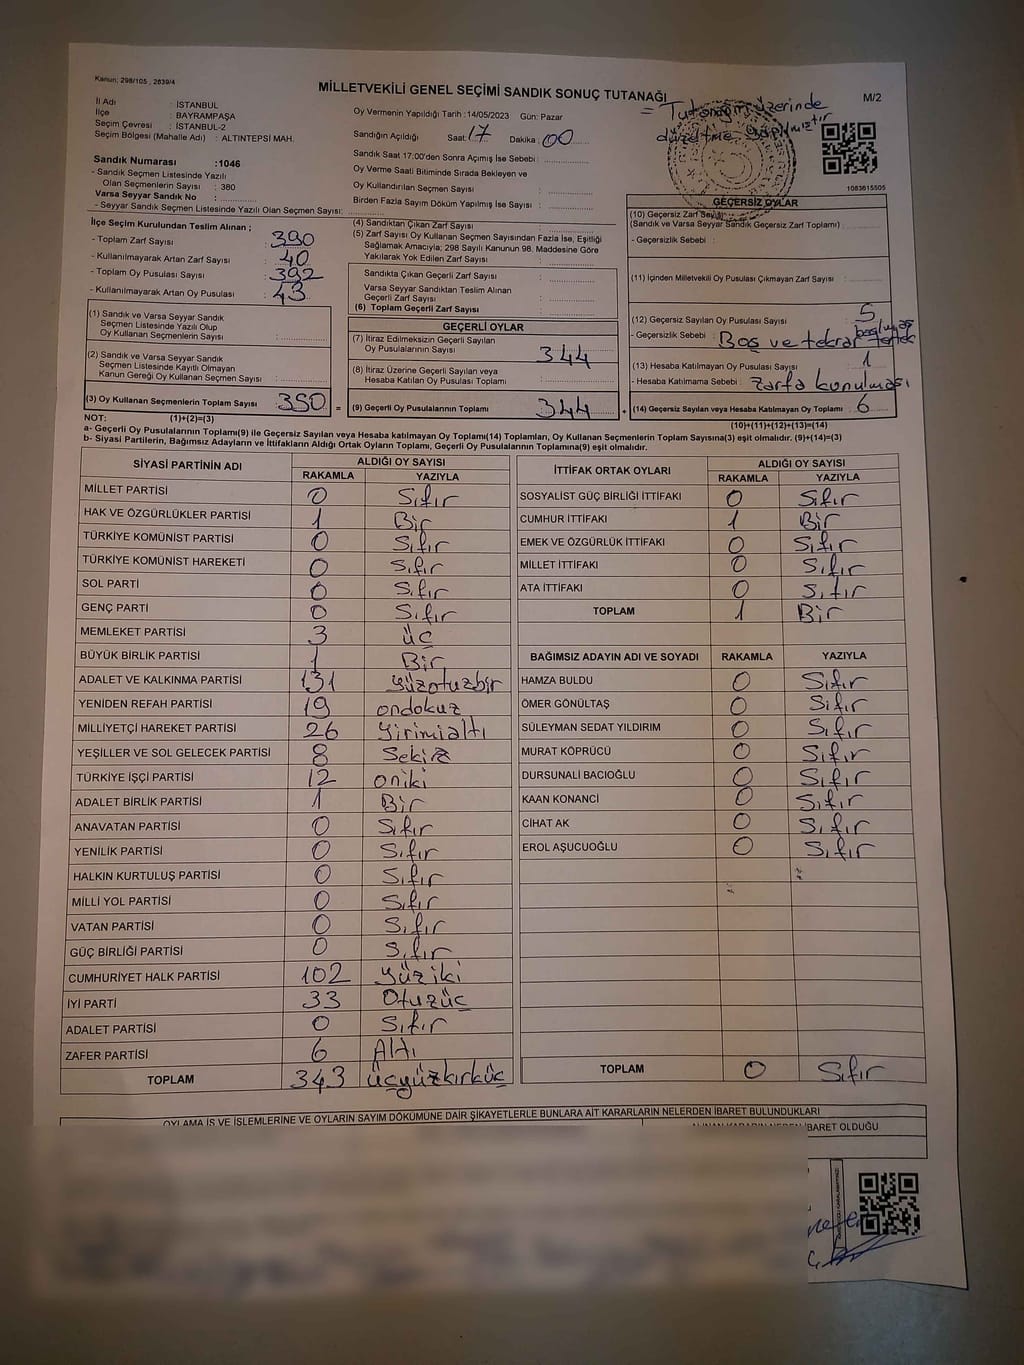 Kanun: 298/105 , 2839/4
MİLLETVEKİLİ GENEL SEÇİMİ SANDIK SONUÇ TUTANAĞI
M/2
= Tutanağın üzerinde
düzeltme yapılmıştır
İl Adı : İSTANBUL
İlçe : BAYRAMPAŞA
Seçim Çevresi : İSTANBUL-2
Seçim Bölgesi (Mahalle Adı) : ALTINTEPSİ MAH.
Sandık Numarası :1046
- Sandık Seçmen Listesinde Yazılı
Olan Seçmenlerin Sayısı : 380
Varsa Seyyar Sandık No :
- Seyyar Sandık Seçmen Listesinde Yazılı Olan Seçmen Sayısı:
Oy Vermenin Yapıldığı Tarih :14/05/2023 Gün: Pazar
Sandığın Açıldığı Saat: 17 Dakika : 00
Sandık Saat 17:00'den Sonra Açımış İse Sebebi :
Oy Verme Saati Bitiminde Sırada Bekleyen ve
Oy Kullandırılan Seçmen Sayısı :
Birden Fazla Sayım Döküm Yapılmış İse Sayısı :
1083615505
İlçe Seçim Kurulundan Teslim Alınan ;
- Toplam Zarf Sayısı : 390
- Kullanılmayarak Artan Zarf Sayısı : 40
- Toplam Oy Pusulası Sayısı : 392
- Kullanılmayarak Artan Oy Pusulası : 43
(1) Sandık ve Varsa Seyyar Sandık
Seçmen Listesinde Yazılı Olup
Oy Kullanan Seçmenlerin Sayısı :
(2) Sandık ve Varsa Seyyar Sandık
Seçmen Listesinde Kayıtlı Olmayan
Kanun Gereği Oy Kullanan Seçmen Sayısı :
(3) Oy Kullanan Seçmenlerin Toplam Sayısı : 350 =
(4) Sandıktan Çıkan Zarf Sayısı :
(5) Zarf Sayısı Oy Kullanan Seçmen Sayısından Fazla İse, Eşitliği
Sağlamak Amacıyla; 298 Sayılı Kanunun 98. Maddesine Göre
Yakılarak Yok Edilen Zarf Sayısı :
Sandıkta Çıkan Geçerli Zarf Sayısı :
Varsa Seyyar Sandıktan Teslim Alınan
Geçerli Zarf Sayısı :
(6) Toplam Geçerli Zarf Sayısı :
GEÇERLİ OYLAR
(7) İtiraz Edilmeksizin Geçerli Sayılan
Oy Pusulalarının Sayısı : 344
(8) İtiraz Üzerine Geçerli Sayılan veya
Hesaba Katılan Oy Pusulası Toplamı :
(9) Geçerli Oy Pusulalarının Toplamı : 344
GEÇERSİZ OYLAR
(10) Geçersiz Zarf Sayısı
(Sandık ve Varsa Seyyar Sandık Geçersiz Zarf Toplamı) :
- Geçersizlik Sebebi :
(11) İçinden Milletvekili Oy Pusulası Çıkmayan Zarf Sayısı :
(12) Geçersiz Sayılan Oy Pusulası Sayısı : 5
- Geçersizlik Sebebi : Boş ve tekrar
(13) Hesaba Katılmayan Oy Pusulası Sayısı : 1
- Hesaba Katılmama Sebebi : Zarfa konulması
(14) Geçersiz Sayılan veya Hesaba Katılmayan Oy Toplamı : 6
NOT: (1)+(2)=(3)
(10)+(11)+(12)+(13)=(14)
a- Geçerli Oy Pusulalarının Toplamı(9) ile Geçersiz Sayılan veya Hesaba katılmayan Oy Toplamı(14) Toplamları, Oy Kullanan Seçmenlerin Toplam Sayısına(3) eşit olmalıdır. (9)+(14)=(3)
b- Siyasi Partilerin, Bağımsız Adayların ve İttifakların Aldığı Ortak Oyların Toplamı, Geçerli Oy Pusulalarının Toplamına(9) eşit olmalıdır.
SİYASİ PARTİNİN ADI ALDIĞI OY SAYISI
RAKAMLA YAZIYLA
MİLLET PARTİSİ 0 Sıfır
HAK VE ÖZGÜRLÜKLER PARTİSİ 1 Bir
TÜRKİYE KOMÜNİST PARTİSİ 0 Sıfır
TÜRKİYE KOMÜNİST HAREKETİ 0 Sıfır
SOL PARTİ 0 Sıfır
GENÇ PARTİ 0 Sıfır
MEMLEKET PARTİSİ 3 üç
BÜYÜK BİRLİK PARTİSİ 1 Bir
ADALET VE KALKINMA PARTİSİ 131 yüzotuzbir
YENİDEN REFAH PARTİSİ 19 ondokuz
MİLLİYETÇİ HAREKET PARTİSİ 26 yirimialtı
YEŞİLLER VE SOL GELECEK PARTİSİ 8 Sekiz
TÜRKİYE İŞÇİ PARTİSİ 12 oniki
ADALET BİRLİK PARTİSİ 1 Bir
ANAVATAN PARTİSİ 0 Sıfır
YENİLİK PARTİSİ 0 Sıfır
HALKIN KURTULUŞ PARTİSİ 0 Sıfır
MİLLİ YOL PARTİSİ 0 Sıfır
VATAN PARTİSİ 0 Sıfır
GÜÇ BİRLİĞİ PARTİSİ 0 Sıfır
CUMHURİYET HALK PARTİSİ 102 yüziki
İYİ PARTİ 33 Otuzüç
ADALET PARTİSİ 0 Sıfır
ZAFER PARTİSİ 6 Altı
TOPLAM 343 üçyüzkırküç
İTTİFAK ORTAK OYLARI ALDIĞI OY SAYISI
RAKAMLA YAZIYLA
SOSYALİST GÜÇ BİRLİĞİ İTTİFAKI 0 Sıfır
CUMHUR İTTİFAKI 1 Bir
EMEK VE ÖZGÜRLÜK İTTİFAKI 0 Sıfır
MİLLET İTTİFAKI 0 Sıfır
ATA İTTİFAKI 0 Sıfır
TOPLAM 1 Bir
BAĞIMSIZ ADAYIN ADI VE SOYADI RAKAMLA YAZIYLA
HAMZA BULDU 0 Sıfır
ÖMER GÖNÜLTAŞ 0 Sıfır
SÜLEYMAN SEDAT YILDIRIM 0 Sıfır
MURAT KÖPRÜCÜ 0 Sıfır
DURSUNALİ BACIOĞLU 0 Sıfır
KAAN KONANCİ 0 Sıfır
CİHAT AK 0 Sıfır
EROL AŞUCUOĞLU 0 Sıfır
TOPLAM 0 Sıfır
OYLAMA İŞ VE İŞLEMLERİNE VE OYLARIN SAYIM DÖKÜMÜNE DAİR ŞİKAYETLERLE BUNLARA AİT KARARLARIN NELERDEN İBARET BULUNDUKLARI
İBARET OLDUĞU